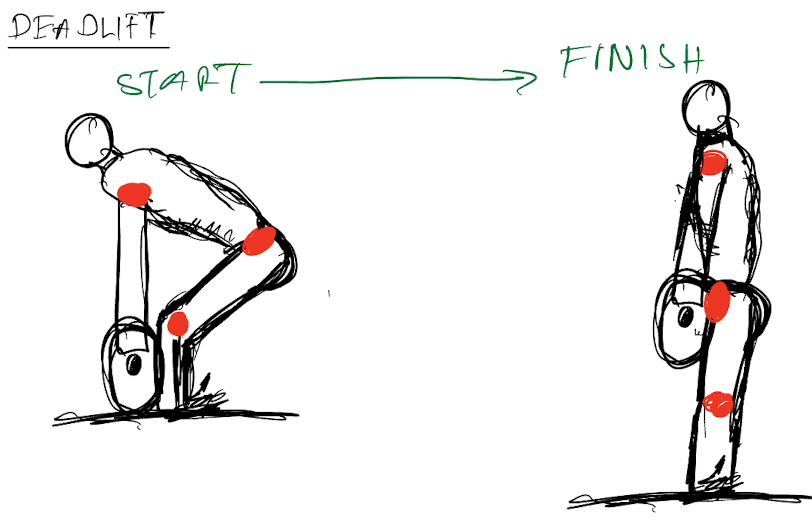 DEADLIFT
START
FINISH